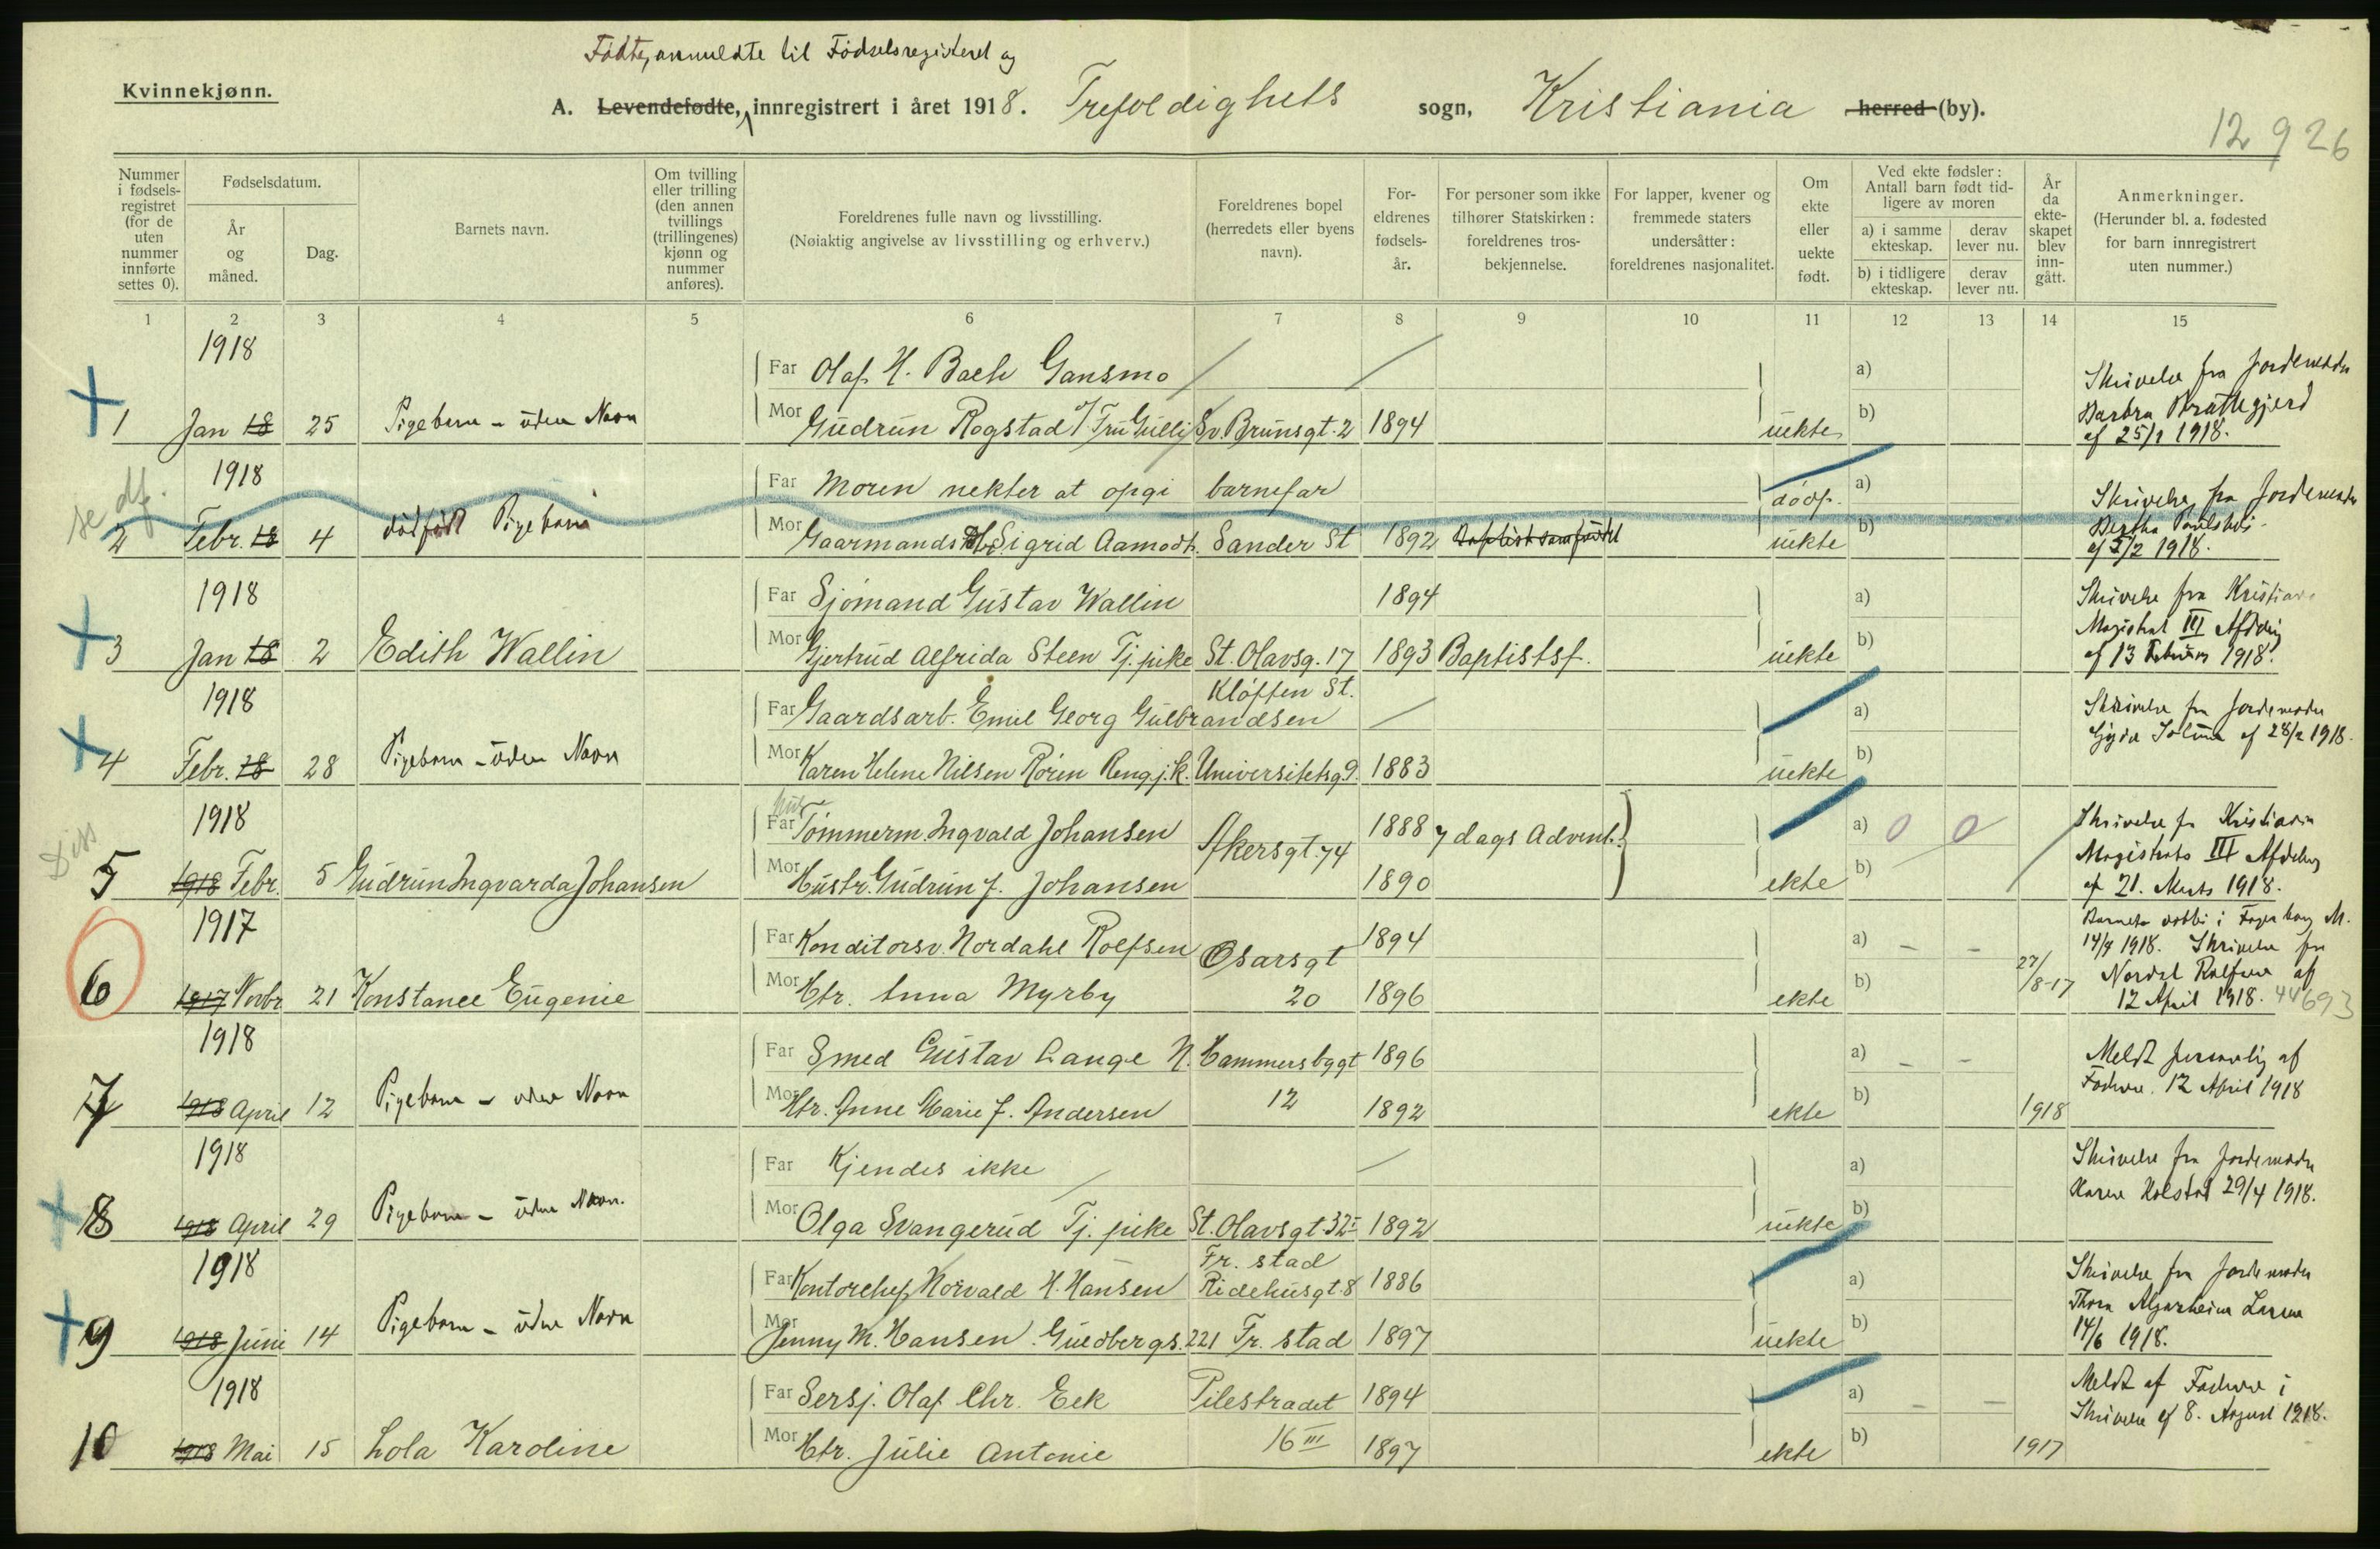 Fødte, anmeldte til Fødselsregisteret og
Kvinnekjønn.
A. Levendefødte, innregistrert i året 1918. Trefoldighets sogn, Kristiania herred (by).
12 926
Nummer i fødsels-registret (for de uten nummer innførte settes 0).
Fødselsdatum.
År og måned.
Dag.
Barnets navn.
Om tvilling eller trilling (den annen tvillings (trillingenes) kjønn og nummer anføres).
Foreldrenes fulle navn og livsstilling.
(Nøiaktig angivelse av livsstilling og erhverv.)
Foreldrenes bopel (herredets eller byens navn).
For-eldrenes fødsels-år.
For personer som ikke tilhører Statskirken: foreldrenes tros-bekjennelse.
For lapper, kvener og fremmede staters undersåtter: foreldrenes nasjonalitet.
Om ekte eller uekte født.
Ved ekte fødsler: Antall barn født tid-ligere av moren
a) i samme ekteskap.
derav lever nu.
b) i tidligere ekteskap.
derav lever nu.
År da ekte-skapet blev inn-gått.
Anmerkninger.
(Herunder bl. a. fødested for barn innregistrert uten nummer.)
1 2 3 4 5 6 7 8 9 10 11 12 13 14 15
1918
Far Olaf H. Bach Gansmo
a)
Skrivelse fra Jordemoder
1 Jan 18 25 Pigebarn - uden Navn
Mor Gudrun Rogstad Sv. Brunsgt. 2 1894 uekte b)
af 25/1 1918.
1918
se df.
Far Moren nekter at opgi barnefar
dødf. a)
Skrivelse fra Jordemoder
2 Febr. 18 4 dødfødt Pigebarn
Mor Sigrid Aamodt. Sander St 1892 Baptistsamfundet uekte b)
af 5/2 1918.
1918
Far Sjømand Gustav Wallin 1894
a)
Skrivelse fra Kristiania
Magistrat III Afdeling
3 Jan 18 2 Edith Wallin
Mor Gjertrud Alfrida Steen Tj. pike St. Olavsg. 17 1893 Baptistsf. uekte b)
af 13 Februar 1918.
1918
Kløften St.
Far Gaardsarb. Emil Georg Gulbrandsen
a)
Skrivelse fra Jordemoder
af 28/2 1918.
4 Febr. 18 28 Pigebarn - uden Navn
Mor Karen Helene Nilsen Røren Rengj.k. Universitetsg. 9 1883 uekte b)
1918
Diss
Far Tømmerm. Ingvald Johansen Akersgt. 74 1888 7 dags Advent.
a) 0 0
Skrivelse fra Kristiania
Magistrats III Afdeling
5 1918 Febr. 5 Gudrun Ingvarda Johansen
Mor Hustr. Gudrun f. Johansen 1890 ekte b)
af 21. Marts 1918.
1917
Far Konditorsv. Nordahl Rolfsen Osarsgt 1894
a) - -
Barnets døbt i Fagerborg M.
14/4 1918. Skrivelse fra
27/8-17
Nordal Rolfsen af
6 1917 Novbr 21 Konstance Eugenie
Mor Htr. Anna Myrby 20 1896 ekte b)
12 April 1918. 44693
1918
Far Smed Gustav Lange N. Hammersbygt 1896
a) - -
Meldt personlig af
Faderen. 12 April 1918
7 1918 April 12 Pigebarn - uden Navn
Mor Htr. Anne Marie f. Andersen 12 1892 ekte b) 1918
1918
Far Kjendes ikke
a)
Skrivelse fra Jordemoder
Karen Kolstad 29/4 1918.
8 1918 April 29 Pigebarn - uden Navn.
Mor Olga Svangerud Tj. pike St. Olavsgt. 32 I 1892 uekte b)
1918
Fr. stad
Far Kontorchef Norvald H. Hansen Ridehusgt. 8 1886
a)
Skrivelse fra Jordemoder
9 1918 Juni 14 Pigebarn - uden Navn
Mor Jenny M. Hansen. Guldbergs. 221 Fr. stad 1897 uekte b)
14/6 1918.
1918
Far Sersj. Olaf Chr. Eek Pilestrædet 1894
a) - -
Meldt af Faderen i
Skrivelse af 8. August 1918.
10 1918 Mai 15 Lola Karoline
Mor Htr. Julie Antonie 16 III 1897 ekte b) 1917